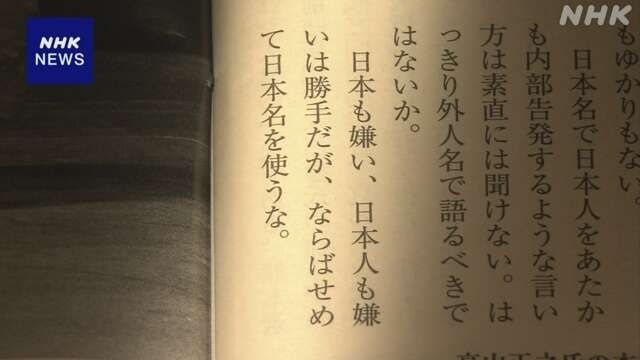 NHK
NEWS
NHK
もゆかりもない。
日本名で日本人をあたか
も内部告発するような言い
方は素直には聞けない。は
っきり外人名で語るべきで
はないか。
日本も嫌い、日本人も嫌
いは勝手だが、ならばせめ
て日本名を使うな。